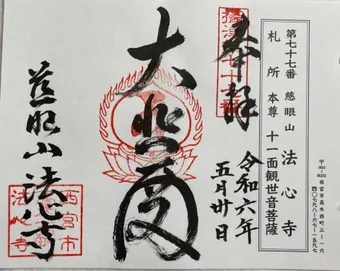 第七十七番 慈眼山
札所 本尊 法心寺
十一面観世音菩薩
奉拝
令和六年
五月卅日
大悲殿
慈眼山法心寺